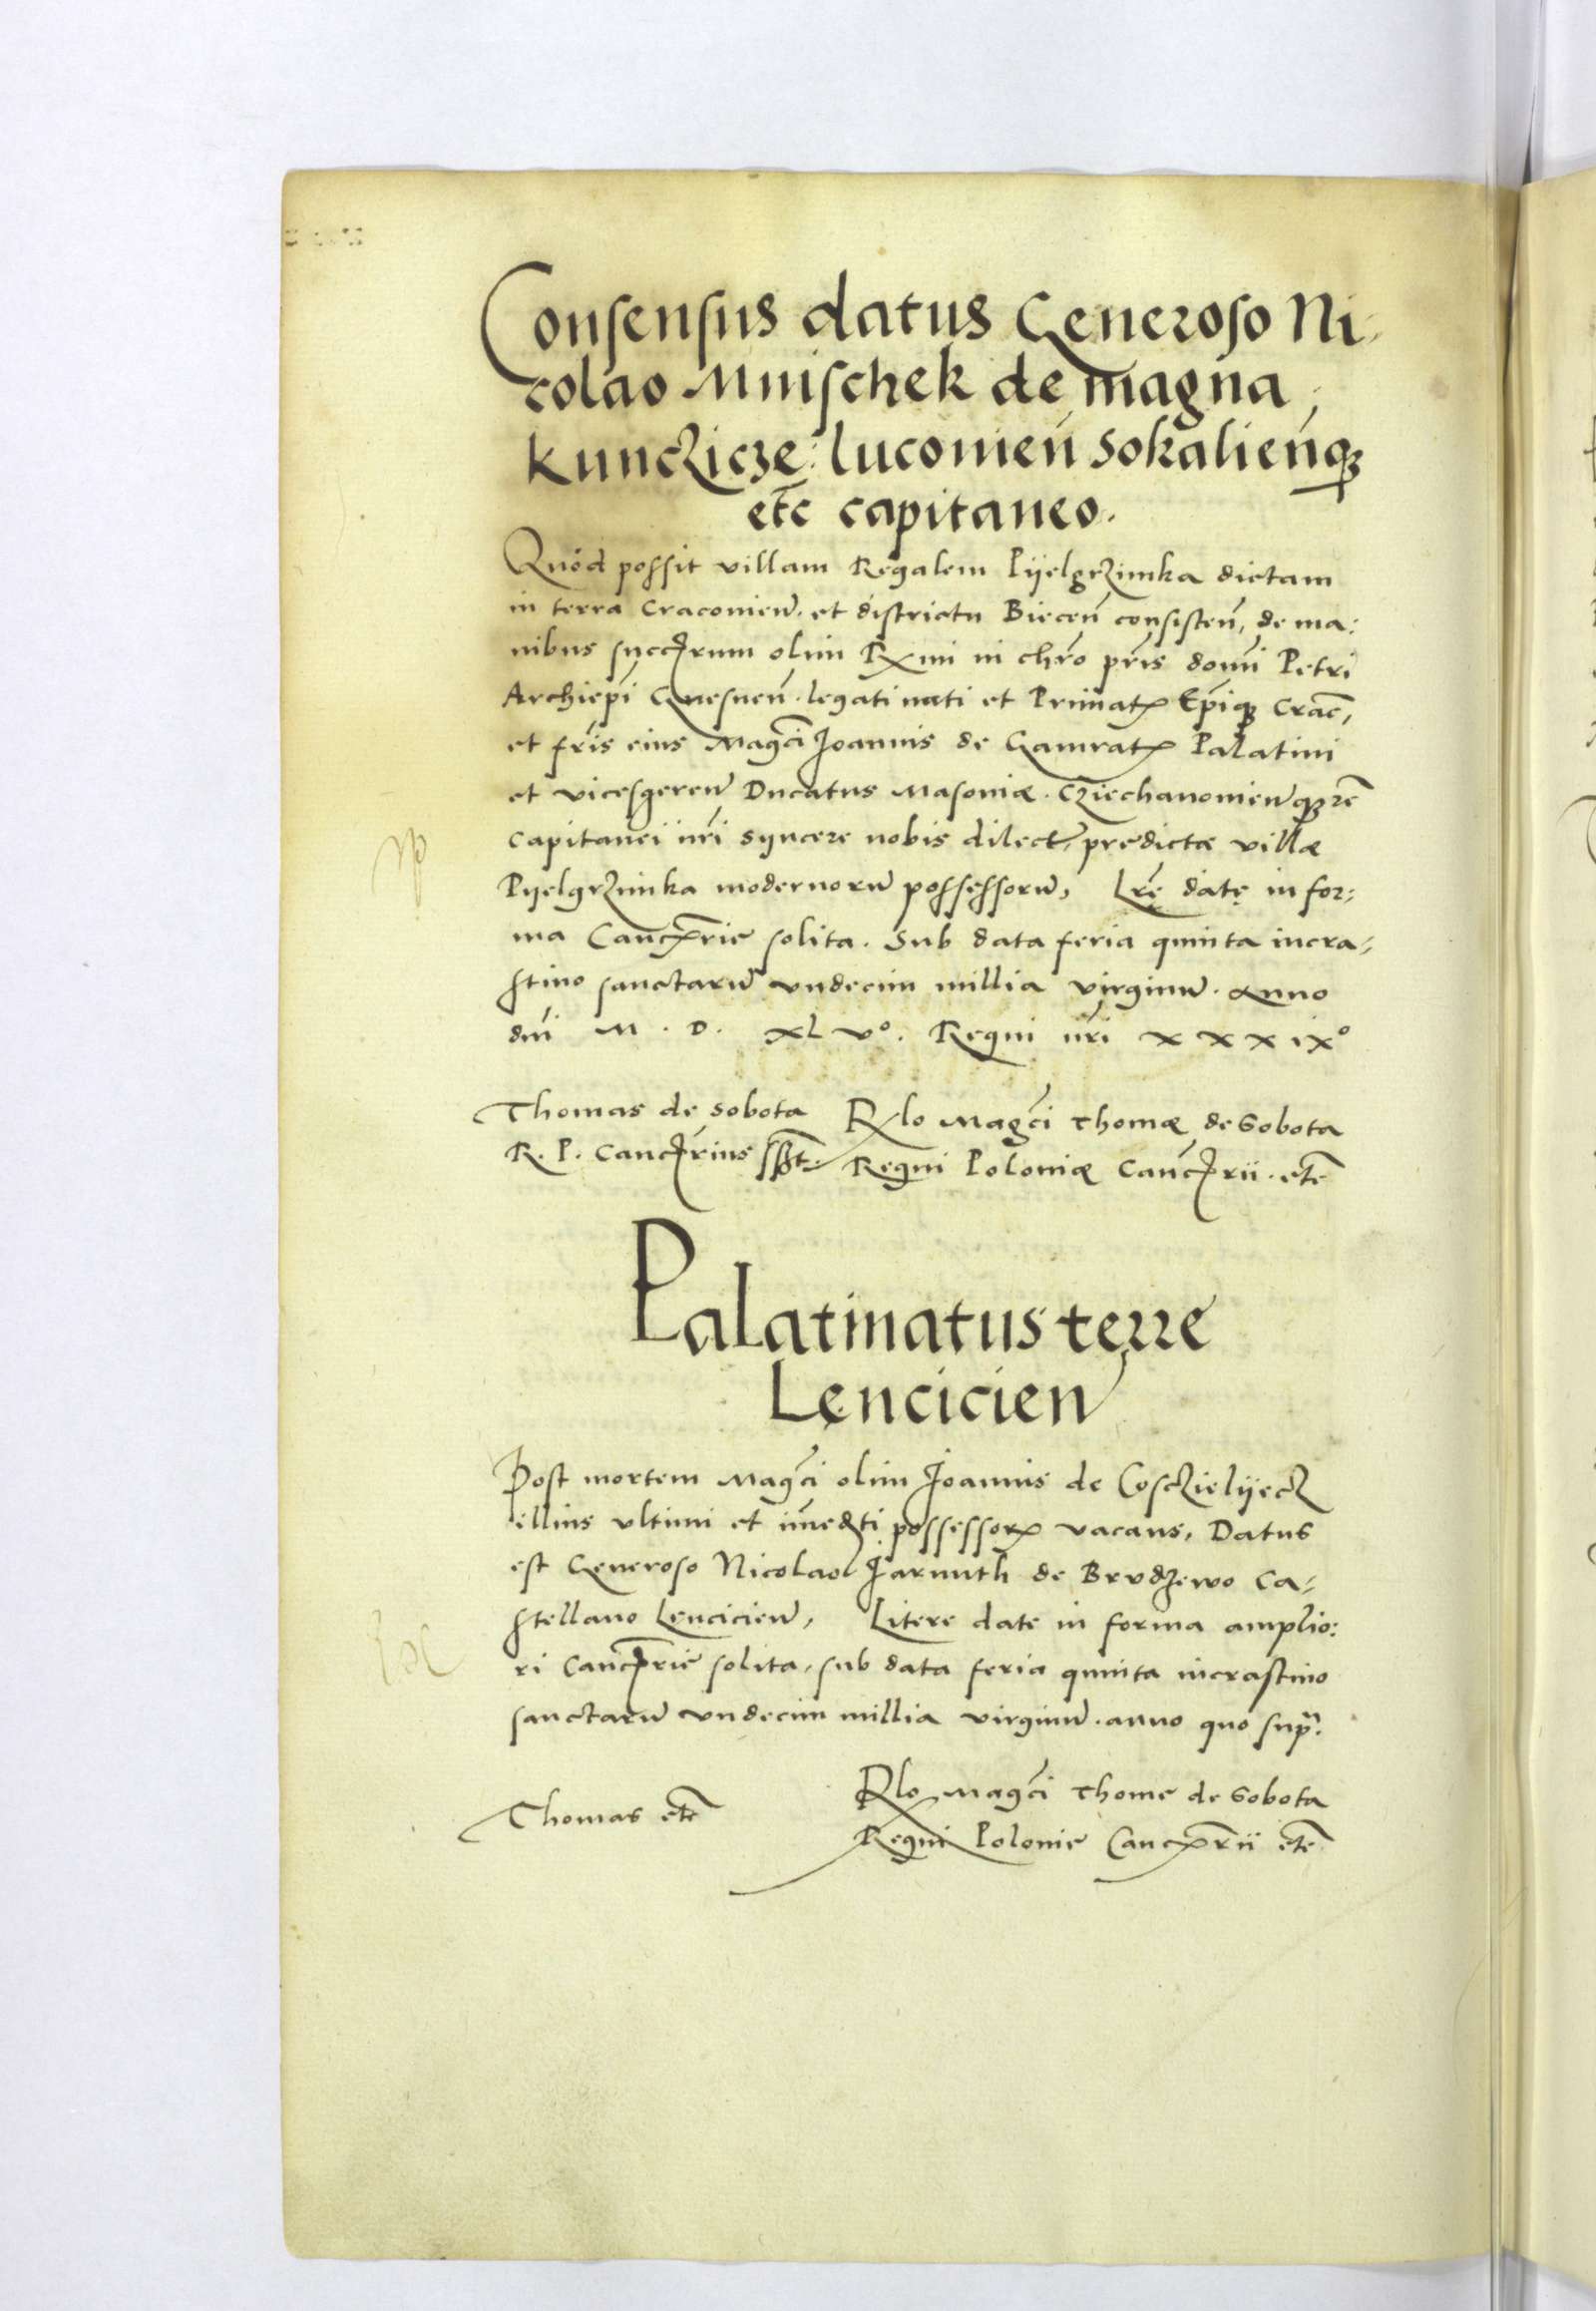 Consensus datus Generoso Ni-
colao Mnischek de magna
Kunczicze: luconień Sokalieńq₃
et̄c capitaneo.
Quod possit villam Regalem Pijelgrzimka dictam
in terra Craconień. et districtu Biecen̄ consisten̄, de ma:
nibus succrum olim Rmi in chro pris domi Petri
Archiepi Gnesnen̄. legati nati et Primatis Epiq₃ Crac̄,
et fris eius Magci Joannis de Gamratx Palatini
et vicesgeren̄ Ducatus Masoniæ. Cziechanonien̄q₃ etc̄
Capitanei nri syncere nobis dilect, predictæ villæ
Pijelgrzimka modernorū possessorū, Lrę datę in for:
ma Cancrie solita. Sub data feria quinta incra-
stino sanctarū vndecim millia virginū. Anno
dni M. D. XL Vº. Regni nri XXX ixº
Thomas de Sobota
R. P. Cancrius sst.
Rlo Magci Thomæ de Sobota
Regni Poloniæ Cancrii. etc̄
Palatinatus terre
Lęncicien̄
Post mortem Magci olim Joannis de Cosczielijecz
illius vltimi et immedti possessorꝭ vacans, Datus
est Generoso Nicolao Jarnuth de Brudzewo Ca-
stellano Lencicien̄, Litere date in forma amplio:
ri Cancrie solita, sub data feria quinta incrastino
sanctarū vndecim millia virginū. anno quo supr̄.
Thomas etc̄
Rlo Magci Thome de Sobota
Regni Polonie Cancrii etc̄